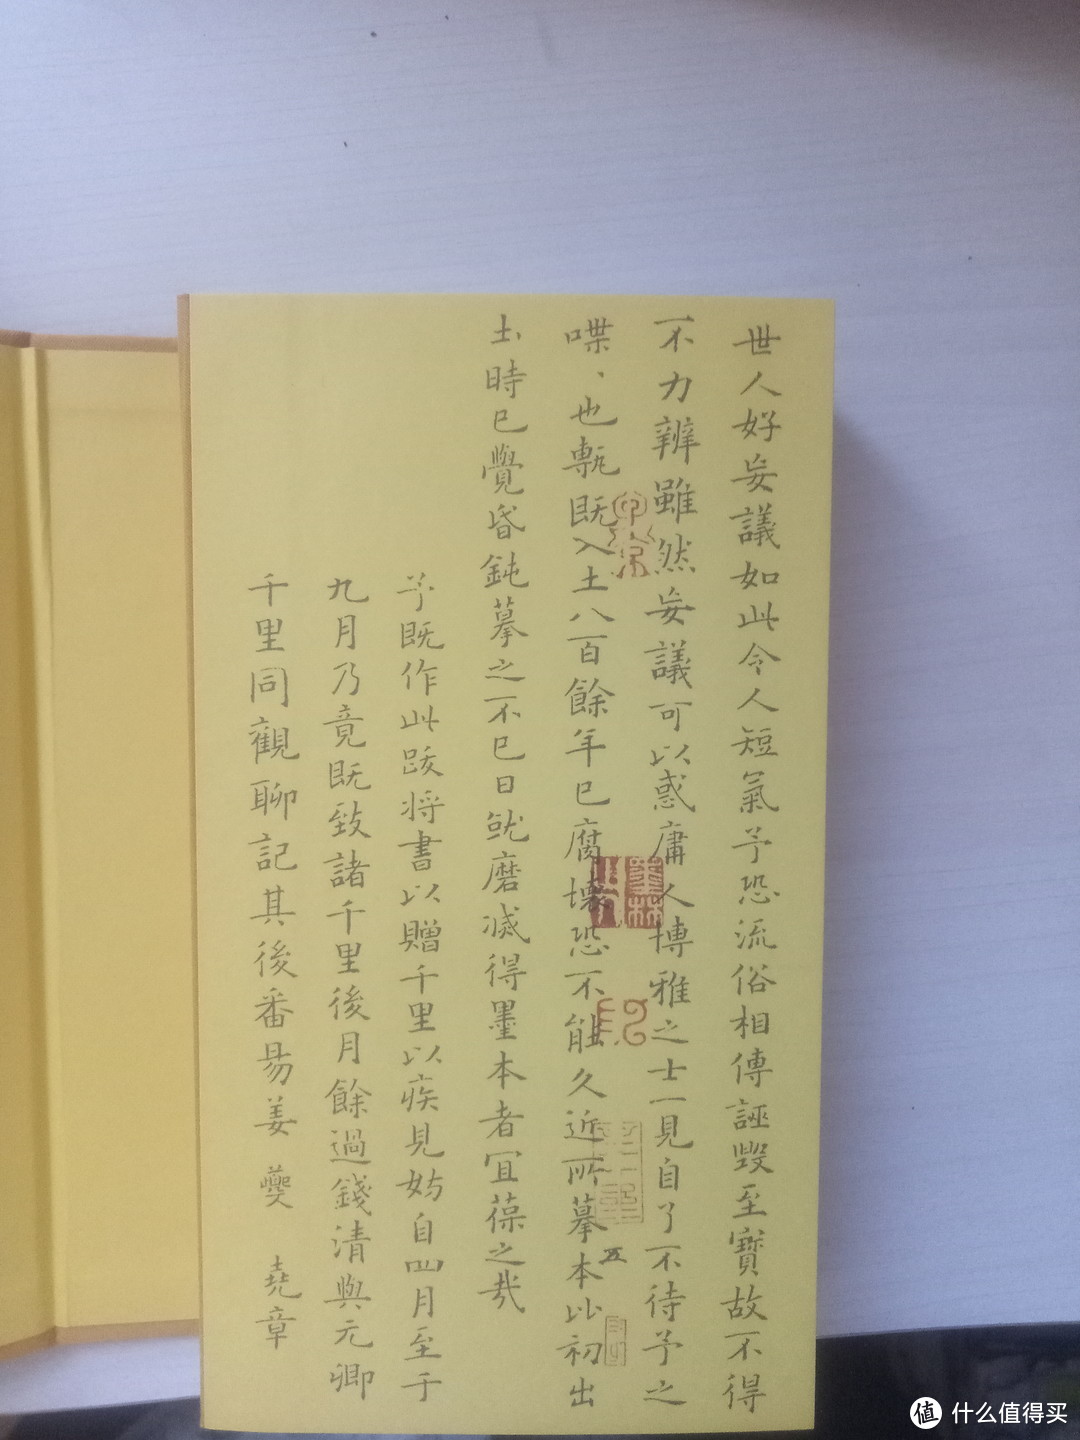 世人好妄議如此令人短氣予恐流俗相傳誣毀至寶故不得
不力辨雖然妄議可以惑庸人博雅之士一見自了不待予之
喋、也甎既入土八百餘年已腐壞恐不能久近所摹本比初出
土時已覺昏鈍摹之不已日就磨滅得墨本者宜葆之哉
予既作此跋將書以贈千里以疾見妨自四月至于
九月乃竟既致諸千里後月餘過錢清與元卿
千里同觀聊記其後番昜姜夔堯章
五
值 什么值得买